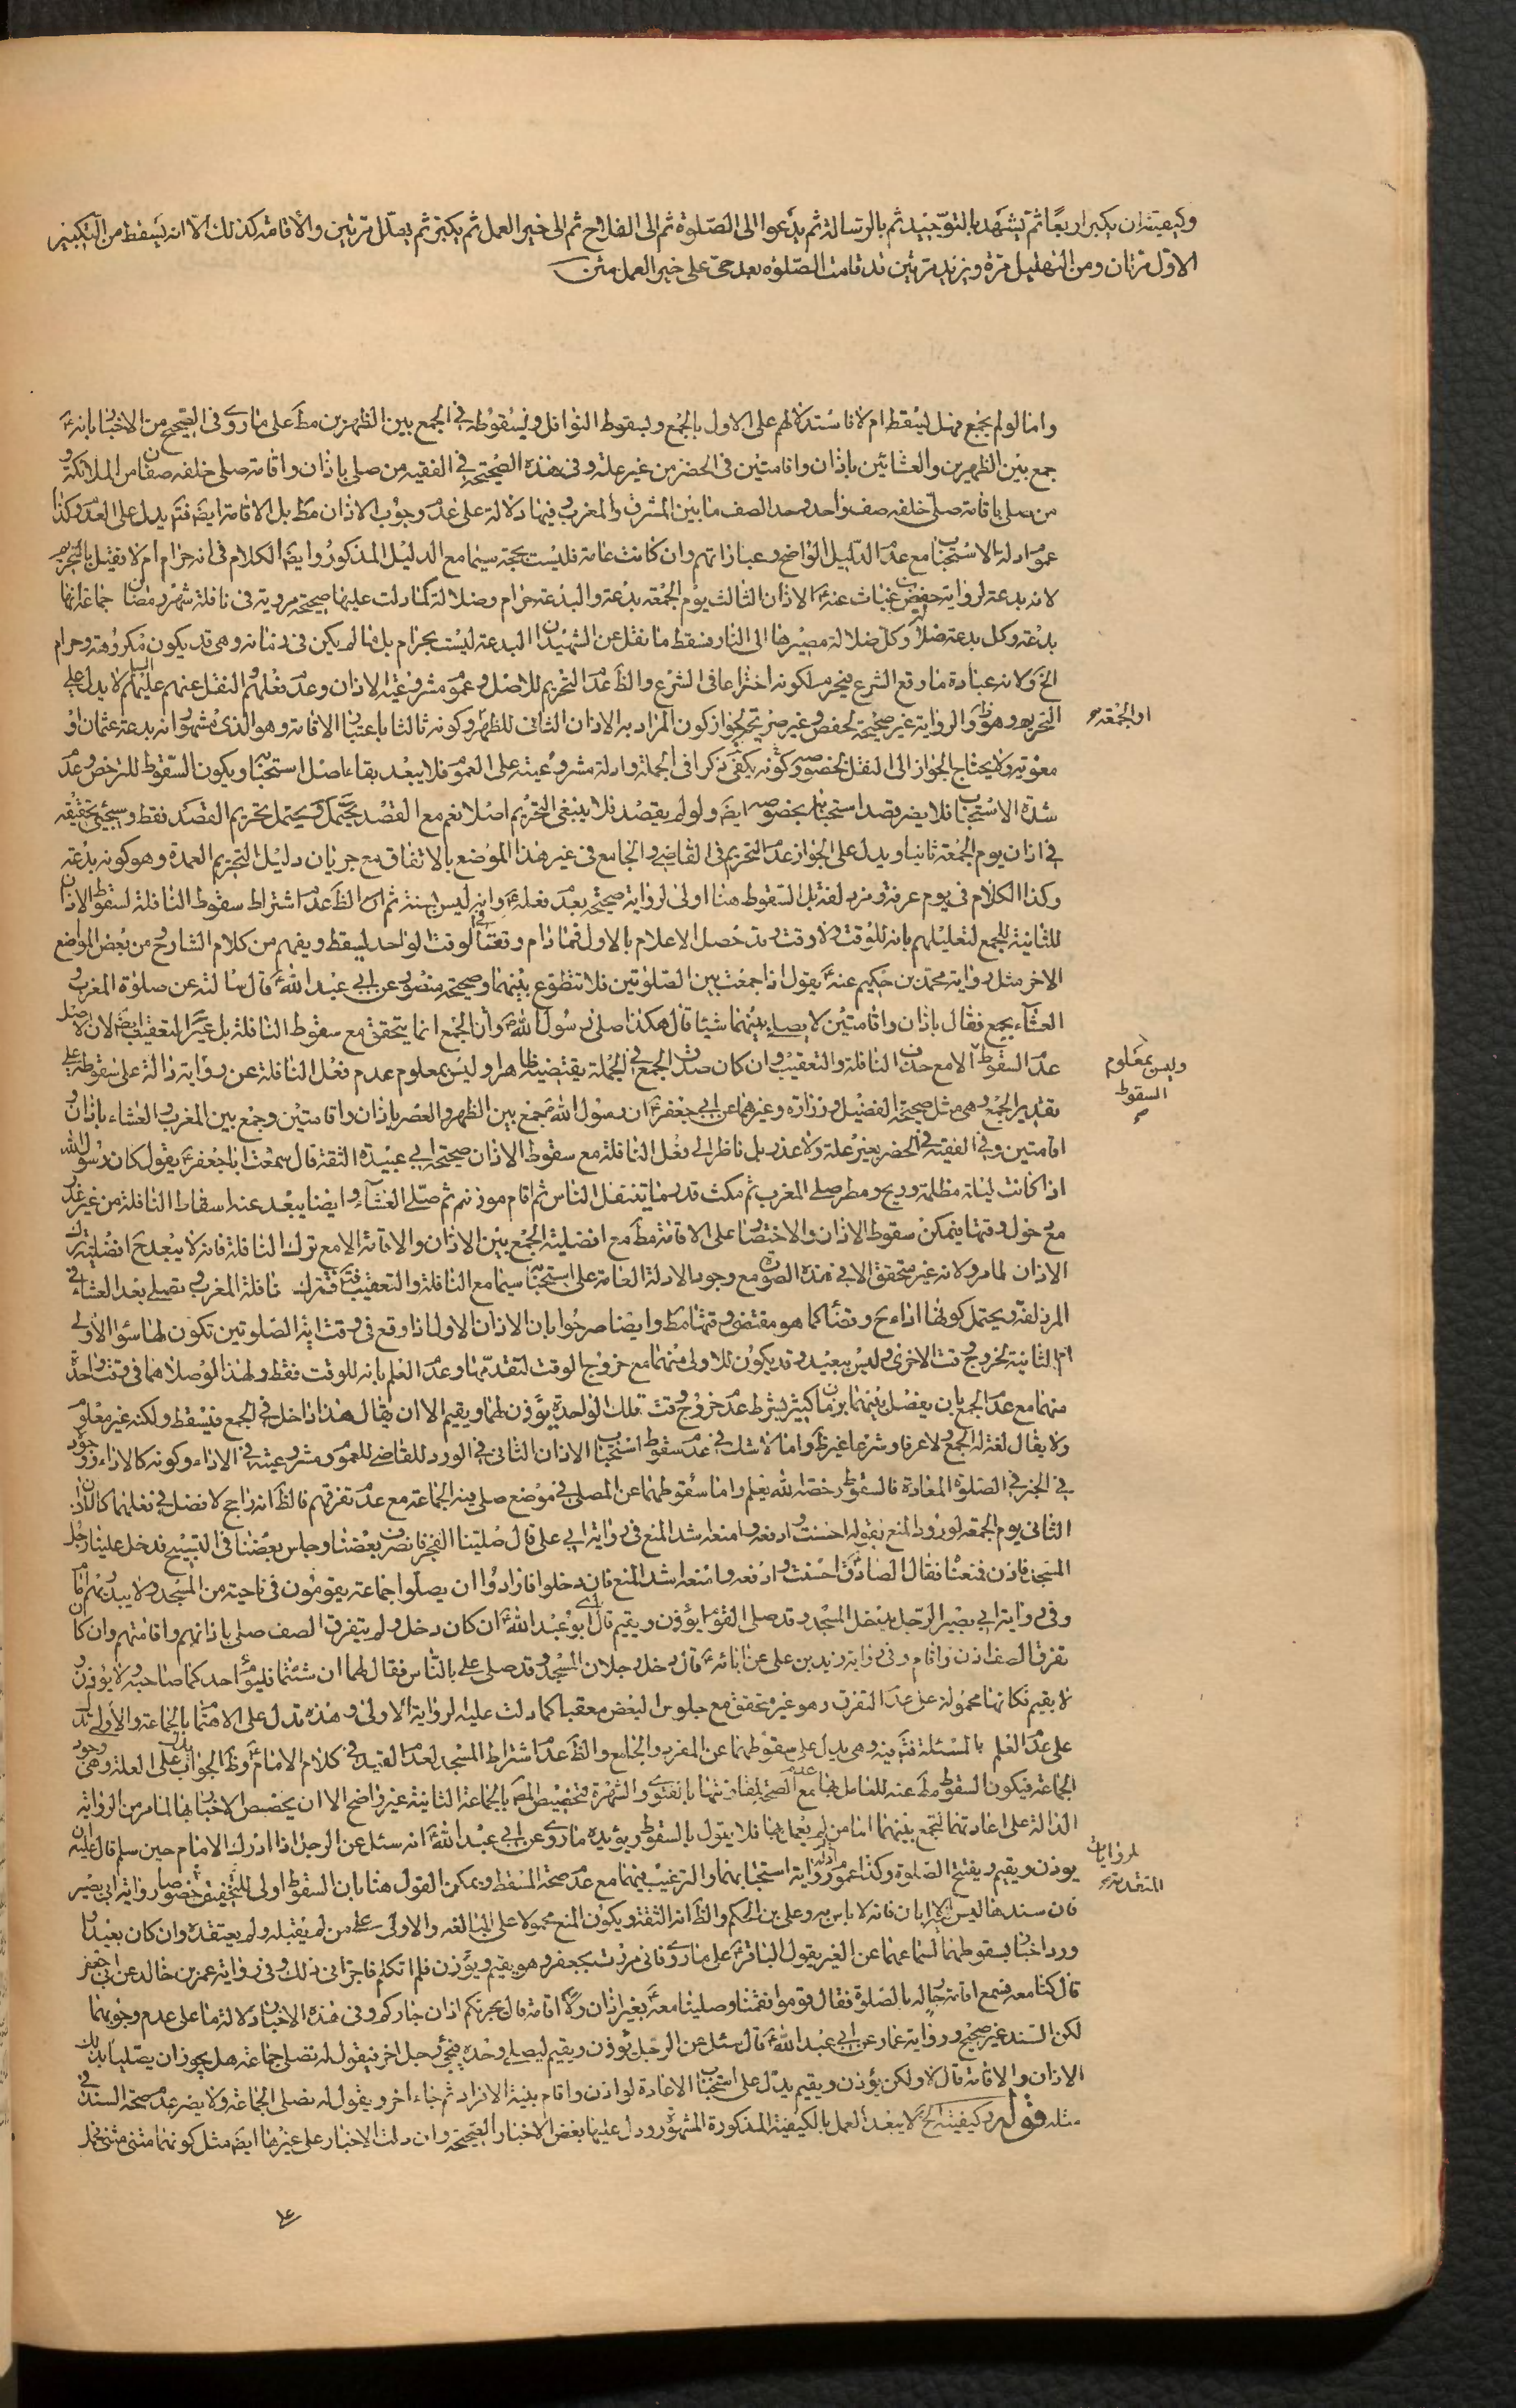 وكيفيته ان يكبر اربعًا ثم يشهد بالتوحيد ثم بالرسالة ثم يدعوا الى الصلوة ثم الى الفلاح ثم الى خير العمل ثم يكبر ثم يهلل مرتين والاقامة كذلك الا انه يسقط من التكبير
الاول مرتان ومن التهليل مرة ويزيد مرتين قد قامت الصلوة بعد حى على خير العمل متن
واما لو لم يجمع فهل يسقط ام لا فاستدلالهم على الاول بالجمع وبسقوط النوافل وبسقوطه فى الجمع بين الظهرين مط على ما روى فى الصحيح من الاخبار بانه ع
جمع بين الظهرين والعشائين باذان واقامتين فى الحضر من غير علة وفى هذه الصحيحة فى الفقيه من صلى باذان واقامة صلى خلفه صفان من الملائكة و
من صلى باقامة صلى خلفه صف واحد وحد الصف ما بين المشرق والمغرب فيها دلالة على عدم وجوب الاذان مط بل الاقامة ايضا فتم يدل على العدم وكذا
عموم ادلة الاستحباب مع عدم الدليل الواضح وعباراتهم وان كانت عامة فليست بحجة سيما مع الدليل المذكور وايضا الكلام فى انه حرام ام لا فقيل بالتحريم
لانه بدعة لرواية حفص بن غياث عنه ع الاذان الثالث يوم الجمعة بدعة والبدعة حرام وضلالة كما دلت عليها صحيحة مروية فى نافلة شهر رمضان جماعة انها
بدعة وكل بدعة ضلالة وكل ضلالة مصيرها الى النار فسقط ما نقل عن الشهيد ان البدعة ليست بحرام بل ما لم يكن فى زمانه وهى قد يكون مكروهة وحرام
الخ ولانه عبادة ما وقع الشرع فيحرم لكونه اختراعا فى الشرع والظ عدم التحريم للاصل وعموم مشروعية الاذان وعدم فعلهم والنقل عنهم عليهم السلام لا يدل على
التحريم وهو ظ والرواية غير صحيحة لحفص وغير صريحة لجواز كون المراد به الاذان الثانى للظهر وكونه ثالثا باعتبار الاقامة وهو الذى مشهور انه بدعة عثمان او
او الجمعة
معوية ولا يحتاج الجواز الى النقل بخصوصه وكونه يكفى ذكرا فى الجملة وادلة مشروعيته على العموم فلا يبعد بقاء اصل استحبابه ويكون السقوط للترخص وعدم
شدة الاستحباب فلا يضر قصد استحبابه بخصوصه ايضا ولو لم يقصد فلا ينبغى التحريم اصلا نعم مع القصد يحتمل ويحتمل تحريم القصد فقط وسيجيئ تحقيقه
فى اذان يوم الجمعة ثانيا ويدل على الجواز عدم التحريم فى القاضى والجامع فى غير هذا الموضع بالاتفاق مع جريان دليل التحريم العمدة وهو كونه بدعة
وكذا الكلام فى يوم عرفة ومزدلفة بل السقوط هنا اولى لرواية صحيحة بعدم فعله ع وانه ليس بسنة ثم ان الظ عدم اشتراط سقوط النافلة لسقوط الاذان
للثانية للجمع لتعليلهم بانه للوقت ولا وقت وقد حصل الاعلام بالاول فما دام وقعتا فى الوقت الواحد ليسقط ويفهم من كلام الشارح من بعض المواضع
الاخر مثل رواية محمد بن حكيم عنه ع يقول اذا جمعت بين الصلوتين فلا تتطوع بينهما وصحيحة منصور عن ابى عبد الله ع قال سالته عن صلوة المغرب و
العشاء بجمع فقال باذان واقامتين لا يصلى بينهما شيئا قال هكذا صلى رسول الله ص وان الجمع انما يتحقق مع سقوط النافلة بل غير التعقيب ايضا لان الاصل
عدم السقوط الا مع حذف النافلة والتعقيب وان كان صدق الجمع فى الجملة يقتضيه ظاهرا وليس بمعلوم عدم فعل النافلة عن رواية دالة على سقوطه على
وليس بمعلوم
السقوط
صح
تقدير الجمع وهى مثل صحيحة الفضيل وزرارة وغيرهما عن ابى جعفر ع ان رسول الله ص جمع بين الظهر والعصر باذان واقامتين وجمع بين المغرب والعشاء باذان و
اقامتين وفى الفقيه فى الحضر بغير علة ولا عذر بل ناظر الى فعل النافلة مع سقوط الاذان صحيحة ابى عبيدة الثقة قال سمعت ابا جعفر ع يقول كان رسول الله ص
اذا كانت ليلة مظلمة وريح ومطر صلى المغرب ثم مكث قدر ما يتنفل الناس ثم اقام موذنهم ثم صلى العشاء وايضا يبعد عنه اسقاط النافلة من غير عذر
مع دخول وقتها فيمكن سقوط الاذان والاختصار على الاقامة مط مع افضلية الجمع بين الاذان والاقامة الا مع ترك النافلة فانه لا يبعد ح افضلية ترك
الاذان لما مر ولانه غير متحقق الا فى هذه الصورة مع وجود الادلة العامة على استحبابه سيما مع النافلة والتعقيب فتم فتترك نافلة المغرب وتصلى بعد العشاء فى
المزدلفة ويحتمل كونها اداء ح وقضاء كما هو مقتضى وقتها مط وايضا صرحوا بان الاذان الاول اذا وقع فى وقت اية الصلوتين تكون لها سواء الاولى
او الثانية لخروج وقت الاخرى وليس ببعيد وقد يكون للاولى منهما مع خروج الوقت لتقدمها وعدم العلم بانه للوقت فقط ولهذا لو صلاهما فى وقت واحدة
منهما مع عدم الجمع بان يفصل بينهما بزمان كثير بشرط عدم خروج وقت تلك الواحدة يؤذن لهما ويقيم الا ان يقال هذا داخل فى الجمع فيسقط ولكنه غير معلوم
ولا يقال لغة له الجمع ولا عرفا وشرعا غير ظ واما لا شك فى عدم سقوط استحباب الاذان الثانى فى الورد للقاضى للعموم ومشروعيته فى الاداء وكونه كالاداء ووجود
فى الخبر فى الصلوة المعادة فالسقوط رخصة الله يعلم واما سقوطهما عن المصلى فى موضع صلى فيه الجماعة مع عدم تفرقهم فالظ انه راجح لا فضل فى فعلهما كالاذان
الثانى يوم الجمعة لورود المنع بقوله احسنت وادفعه وامنعه اشد المنع فى رواية ابى على قال صلينا الفجر فانصرف بعضنا وجلس بعضنا فى التسبيح فدخل علينا رجل
المسجد فاذن فمنعناه فقال الصادق ع احسنت وادفعه وامنعه اشد المنع فان دخلوا فارادوا ان يصلوا جماعة يقومون فى ناحية من المسجد ولا يبد بهم امام
وفى رواية ابى بصير الرجل يدخل المسجد وقد صلى القوم ايؤذن ويقيم قال ابو عبد الله ع ان كان دخل ولم يتفرق الصف صلى باذانهم واقامتهم وان كان
تفرق الصف اذن واقام وفى رواية زيد بن على عن ابائه ع قال دخل رجلان المسجد وقد صلى على بالناس فقال لهما ان شئتما فليؤم احدكما صاحبه ولا يؤذن و
لا يقيم فكانها محمولة على عدم التفرق وهو غير متحقق مع جلوس البعض معقبا كما دلت عليه الرواية الاولى وهذه تدل على الاهتمام بالجماعة والاولى تدل
على عدم العلم بالمسئلة فتم فيه وهى يدل على سقوطهما عن المفرد والجامع والظ عدم اشتراط المسجد لعدم القيد فى كلام الامام ع وظ الجواب يدل على العلة وهى وجود
الجماعة فيكون السقوط مط عنه للعامل بها مع عدم الصحة لمقارنتها بالفتوى والشهرة وتخصيص المص بالجماعة الثانية غير واضح الا ان يخصص الاخبار بها لما مر من الرواية
الدالة على اعادتهما لتجمع بينهما اما من لم يعمل بها فلا يقول بالسقوط ويؤيده ما روى عن ابى عبد الله ع انه سئل عن الرجل اذا ادرك الامام حين سلم قال عليه ان
لروايات
المتقدمة
يوذن ويقيم ويفتتح الصلوة وكذا عموم ادلة رواية استحبابهما والترغيب فيهما مع عدم صحة المسقط ويمكن القول هنا بان السقوط اولى للتخفيف خصوصا رواية ابى بصير
فان سندها ليس الا ابان فانه لا باس به وعلى بن الحكم والظ انه الثقة ويكون المنع محمولا على المبالغة والاولى على من لم يقبله ولم يعتقده وان كان بعيدا و
ورد اخبار بسقوطهما لسماعهما عن الغير يقول الباقر ع على ما روى فانى مررت بجعفر وهو يقيم ويؤذن فلم اتكلم فاجزانى ذلك وفى رواية عمر بن خالد عن ابى جعفر
قال كنا معه فسمع اقامة جار له بالصلوة فقال قوموا فقمنا وصلينا معه بغير اذان ولا اقامة قال يجزئكم اذان جاركم وفى هذه الاخبار دلالة ما على عدم وجوبهما
لكن السند غير صحيح ورواية عمار عن ابى عبد الله ع قال سئل عن الرجل يؤذن ويقيم ليصلى وحده فيجئ رجل اخر فيقول له تصلى جماعة هل يجوز ان يصليا بذلك
الاذان والاقامة قال لا ولكن يؤذن ويقيم يدل على استحباب الاعادة لو اذن واقام بنية الانفراد ثم جاء اخر ويقول له نصلى الجماعة ولا يضر عدم صحة السند فى
مثله قوله وكيفيته الخ لا يبعد العمل بالكيفية المذكورة المشهورة ودل عليها بعض الاخبار الصحيحة وان دلت الاخبار على غيرها ايضا مثل كونهما مثنى مثنى